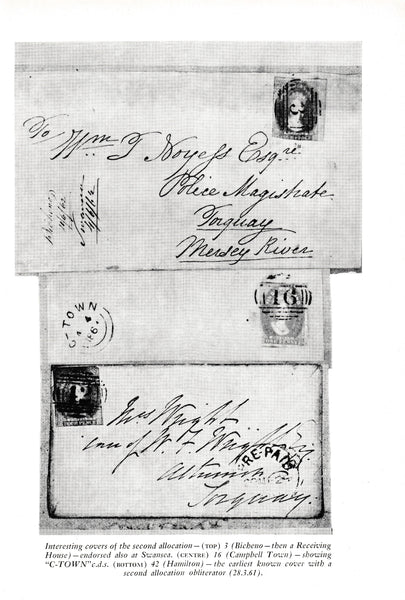 3
To Wm. T Noyes Esqre
Police Magistrate
Torquay
Mersey River
Bicheno
11/6/62
Swansea
C-TOWN
16
Mrs Wright
care of W. F. Wright
Torquay
PRE-PAID
Interesting covers of the second allocation—(TOP) 3 (Bicheno—then a Receiving
House)—endorsed also at Swansea. (CENTRE) 16 (Campbell Town)—showing
"C-TOWN" c.d.s. (BOTTOM) 42 (Hamilton)—the earliest known cover with a
second allocation obliterator (28.3.61).